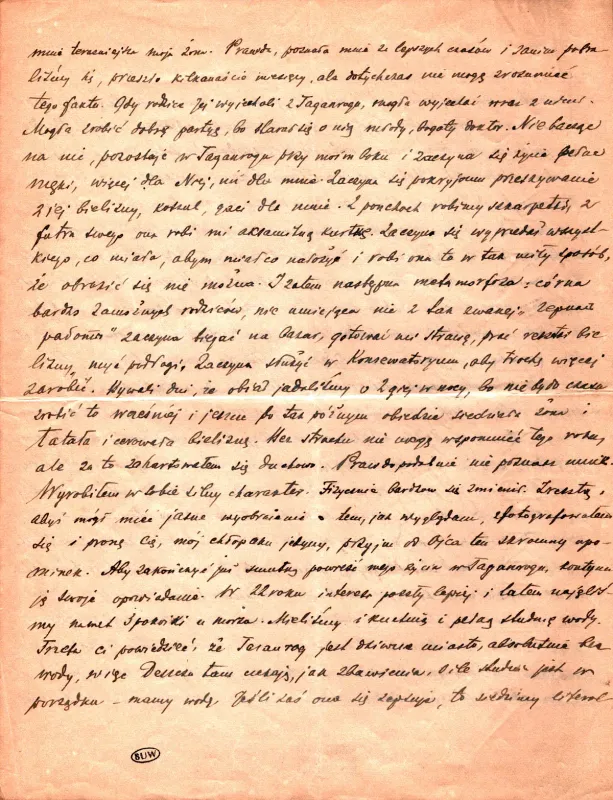 mnie teraźniejsza moja żona. Prawda, poznała mnie za lepszych czasów i zanim pobra-
liśmy się, przeszło kilkanaście miesięcy, ale dotychczas nie mogę zrozumieć
tego faktu. Gdy rodzice Jej wyjechali z Taganrogu, mogła wyjechać wraz z nimi.
Mogła zrobić dobrą partyę, bo starał się o nią młody, bogaty doktor. Nie bacząc
na nic, pozostaje w Taganrogu przy moim boku i zaczyna się życie pełne
męki, więcej dla Niej, niż dla mnie. Zaczyna się pokryjomu przeszywanie
z jej bielizny, koszul, gaci dla mnie. Z pończoch robimy szkarpetki, z
futra swego ona robi mi aksamitną kurtkę. Zaczyna się wyprzedaż wszyst-
kiego, co miała, abym miał co nałożyć i robi ona to w tak miły sposób,
że obrazić się nie można. I zatem następna metamorfoza: córka
bardzo zamożnych rodziców, nie umiejąca nic z tak zwanej „черной
работы" zaczyna biegać na bazar, gotować mi strawę, prać resztki bie-
lizny, myć podłogi. Zaczyna służyć w Konserwatoryum, aby trochę więcej
zarobić. Bywali dni, że obiad jadaliśmy o 2giej w nocy, bo nie było czasu
zrobić to wcześniej i jeszcze po tak późnym obiedzie siedziała żona i
łatała i cerowała bieliznę. Bez strachu nie mogę wspomnieć tego roku,
ale za to zahartowałem się duchowo. Prawdopodobnie nie poznasz mnie.
Wyrobiłem w sobie silny charakter. Fizycznie bardzom się zmienił. Zresztą,
abyś mógł mieć jasne wyobrażenie o tem, jak wyglądam, sfotografowałem
się i proszę Cię, mój chłopaku jedyny, przyjm od Ojca ten skromny upo-
minek. Aby zakończyć już smutną powieść mego życia w Taganrogu, kontynu-
ję swoje opowiadanie. W 22 roku interesa poszły lepiej i latem najęli-
my nawet 2 pokoiki u morza. Mieliśmy i kuchnię i pełną studnię wody.
Trzeba ci powiedzieć, że Taganrog jest dziwne miasto, absolutnie bez
wody, więc deszczu tam czekają, jak zbawienia. O ile studnia jest w
porządku – mamy wodę. Jeśli zaś ona się zepsuje, to siedzimy literal-
BUW